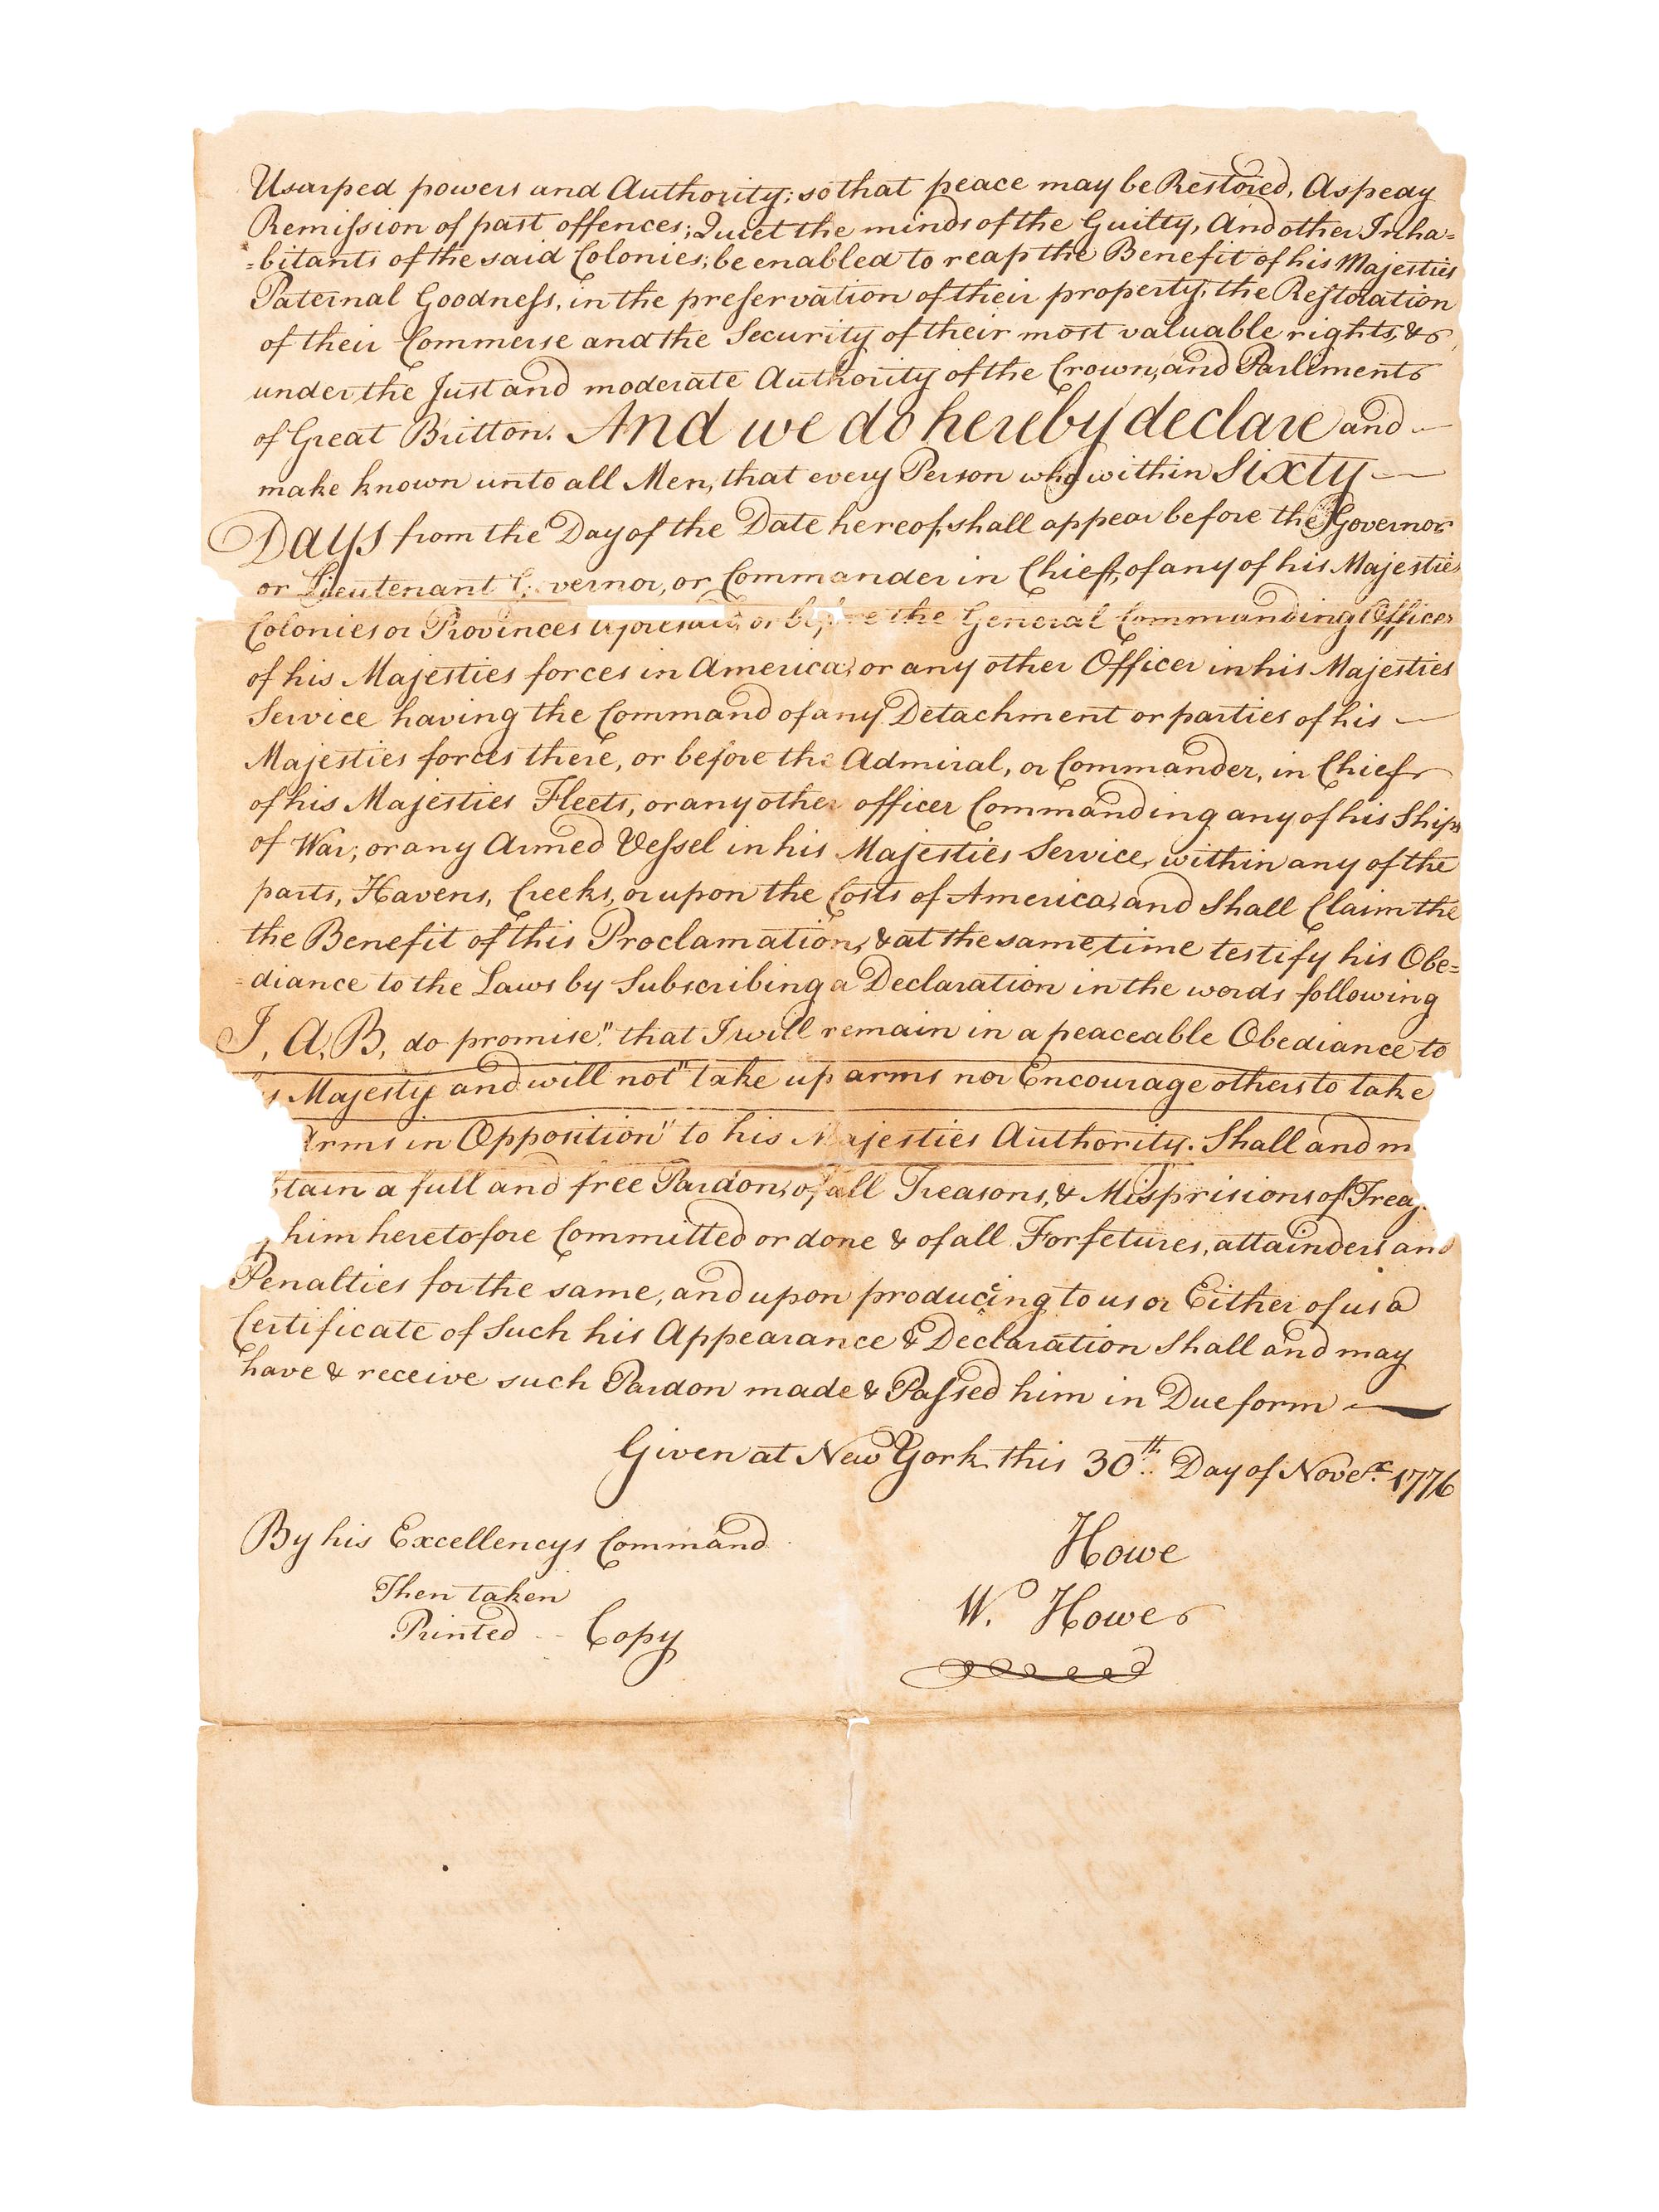 Usurped powers and Authority; so that peace may be Restored, A speay
Remission of past offences; Quiet the minds of the Guilty, And other Inha=
=bitants of the said Colonies; be enabled to reap the Benefit of his Majesties
Paternal Goodness, in the preservation of their property, the Restoration
of their Commerse and the Security of their most valuable rights, &
under the Just and moderate Authority of the Crown, and Parliments
of Great Britton. And we do hereby declare and —
make known unto all Men, that every Person who within Sixty —
Days from the Day of the Date hereof, shall appear before the Governor
or Lieutenant Governor, or Commander in Chief, of any of his Majesties
Colonies or Provinces aforesaid, or before the General Commanding Officer
of his Majesties forces in America, or any other Officer in his Majesties
Service having the Command of any Detachment or parties of his —
Majesties forces there, or before the Admiral, or Commander, in Chief
of his Majesties Fleets, or any other officer Commanding any of his Ships
of War; or any Armed Vessel in his Majesties Service, within any of the
parts, Havens, Creeks, or upon the Costs of America, and Shall Claim the
the Benefit of this Proclamation, & at the same time testify his Obe=
=diance to the Laws by Subscribing a Declaration in the words following
I, A, B, do promise" that I will remain in a peaceable Obediance to
s Majesty and will not" take up arms nor Encourage others to take
Arms in Opposition" to his Majesties Authority. Shall and m
tain a full and free Pardon, of all Treasons, & Misprisions of Treas
him heretofore Committed or done & of all Forfetures, attainders and
Penalties for the same, and upon producing to us or Either of us a
Certificate of Such his Appearance & Declaration Shall and may
have & receive such Pardon made & Passed him in Due form —
Given at New York this 30th Day of Nover. 1776
By his Excellencys Command
Howe
Then taken
W. Howe
Printed -- Copy